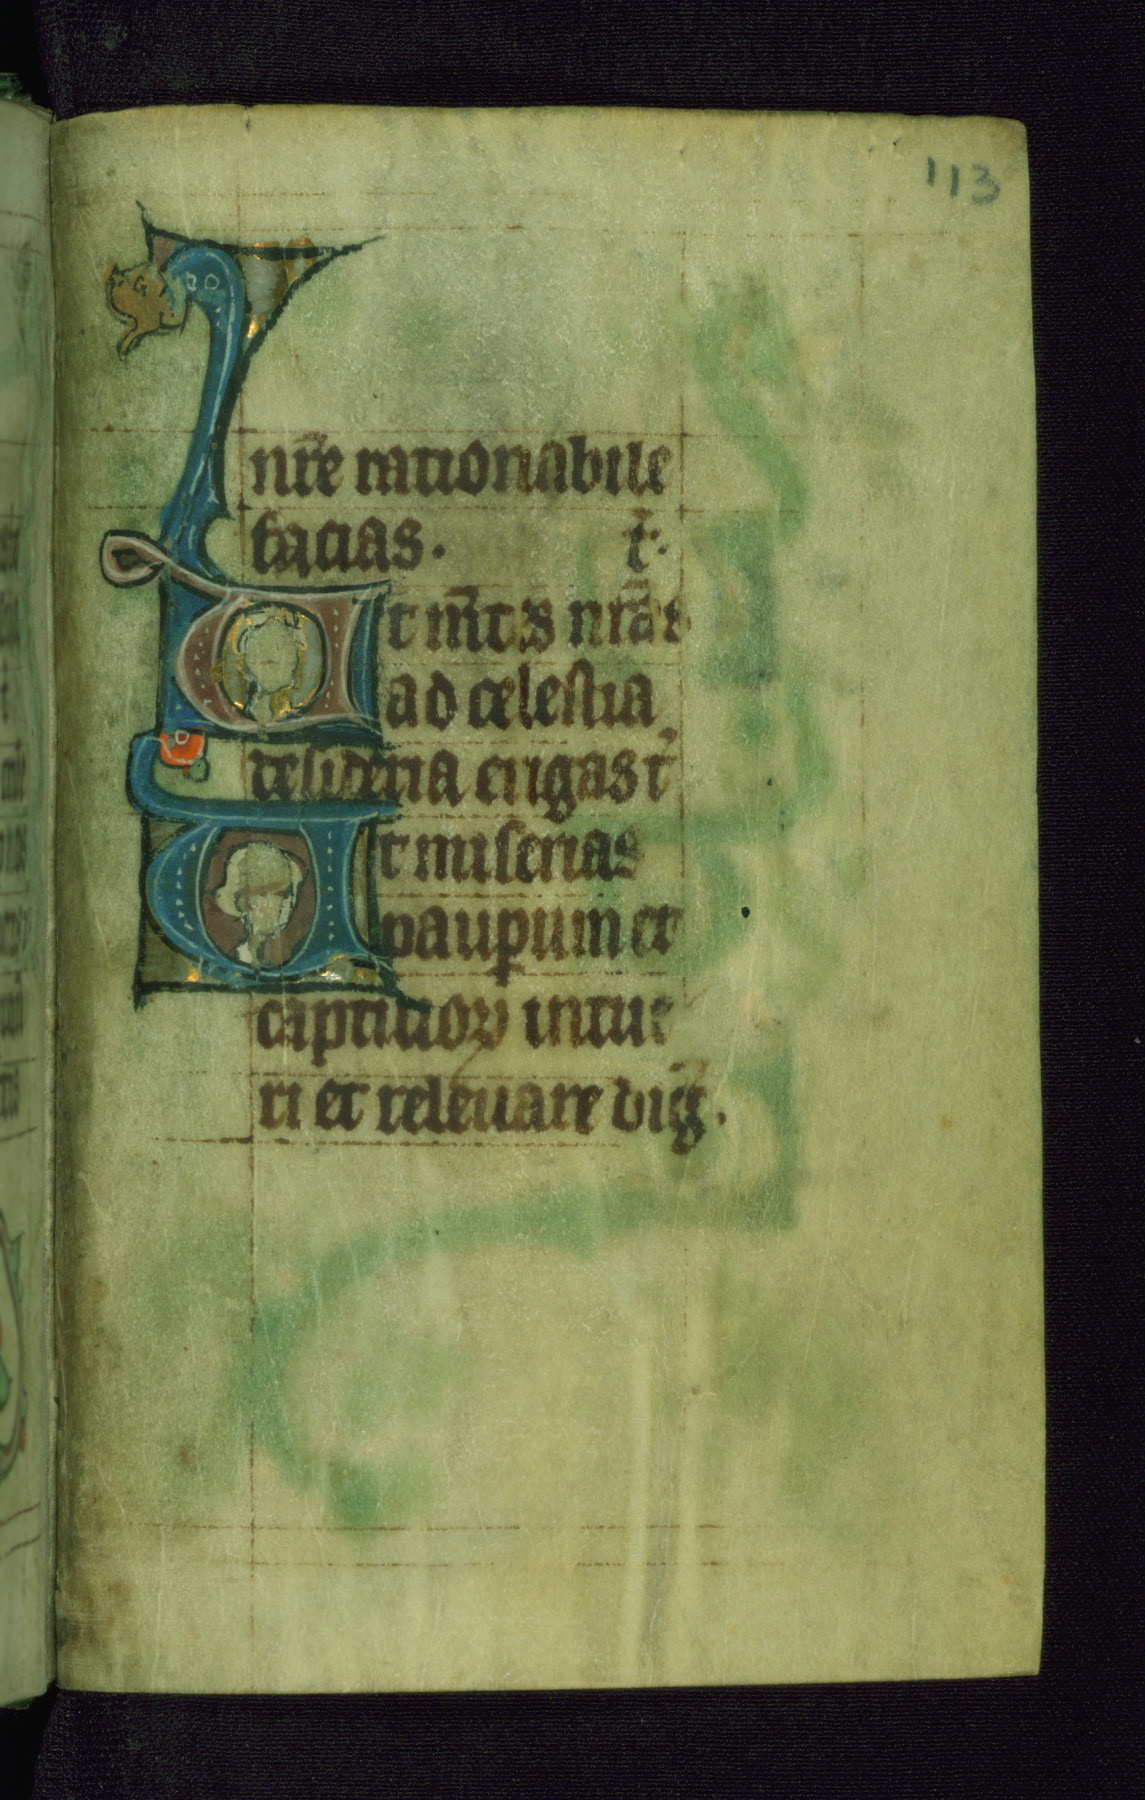 113
nr̄e rationabile
facias. t̄.
Ut m̄t̄s nr̄as
ad celestia
desideria erigas t̄
Ut miserias
paup̱um et
captiuoꝝ intue
ri et releuare diḡ.